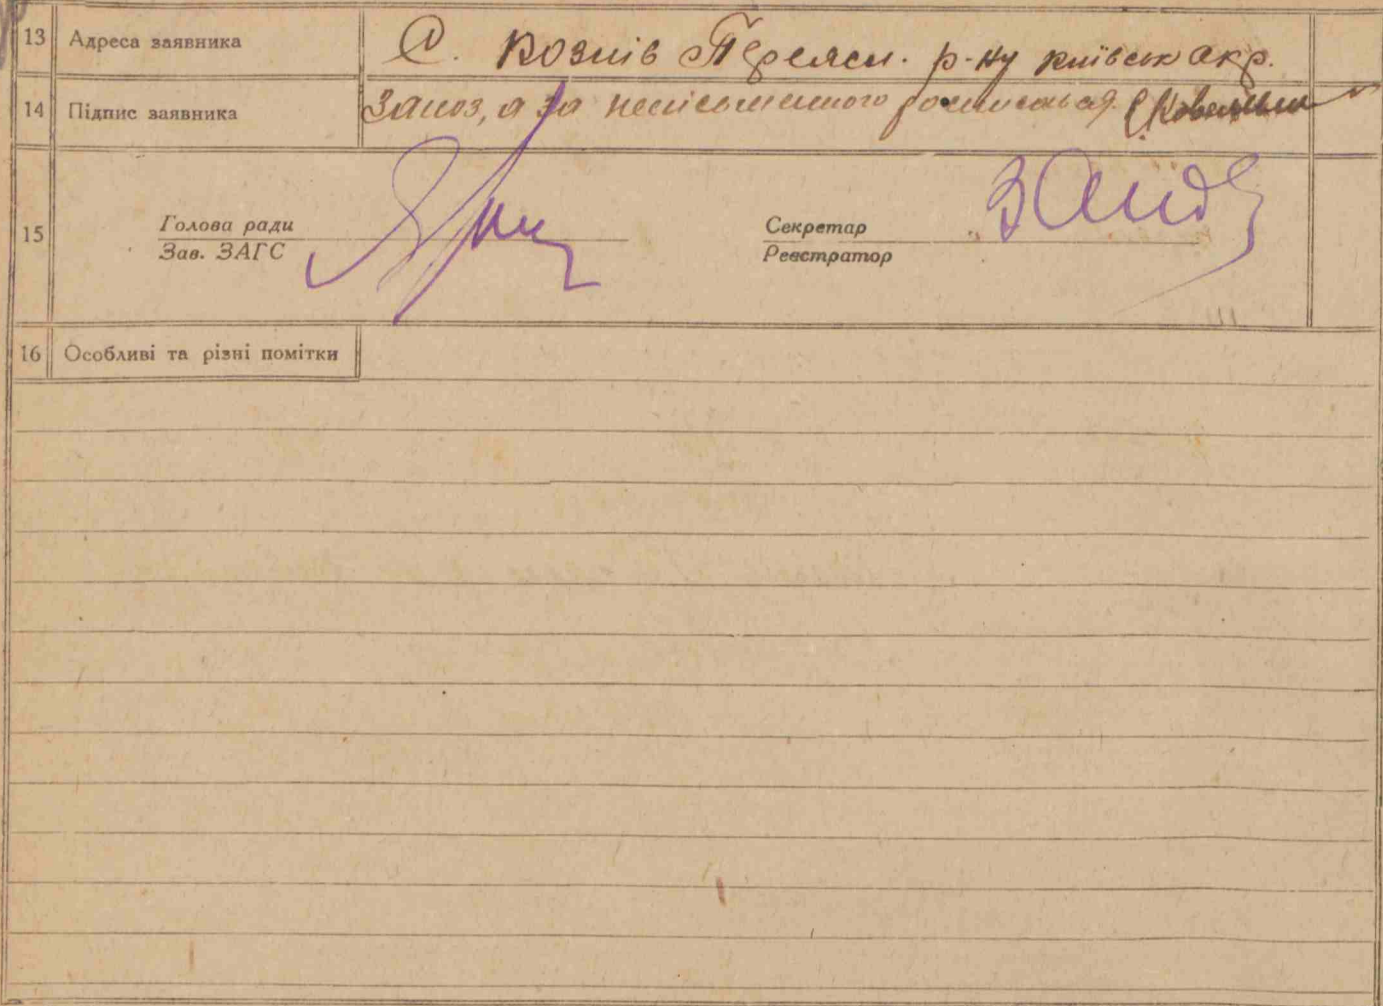 13 Адреса заявника С. Козлів Переясл. р-ну київськ акр.
14 Підпис заявника а за неписьменного
15 Голова ради
Зав. ЗАГС
Секретар
Реєстратор
16 Особливі та різні помітки